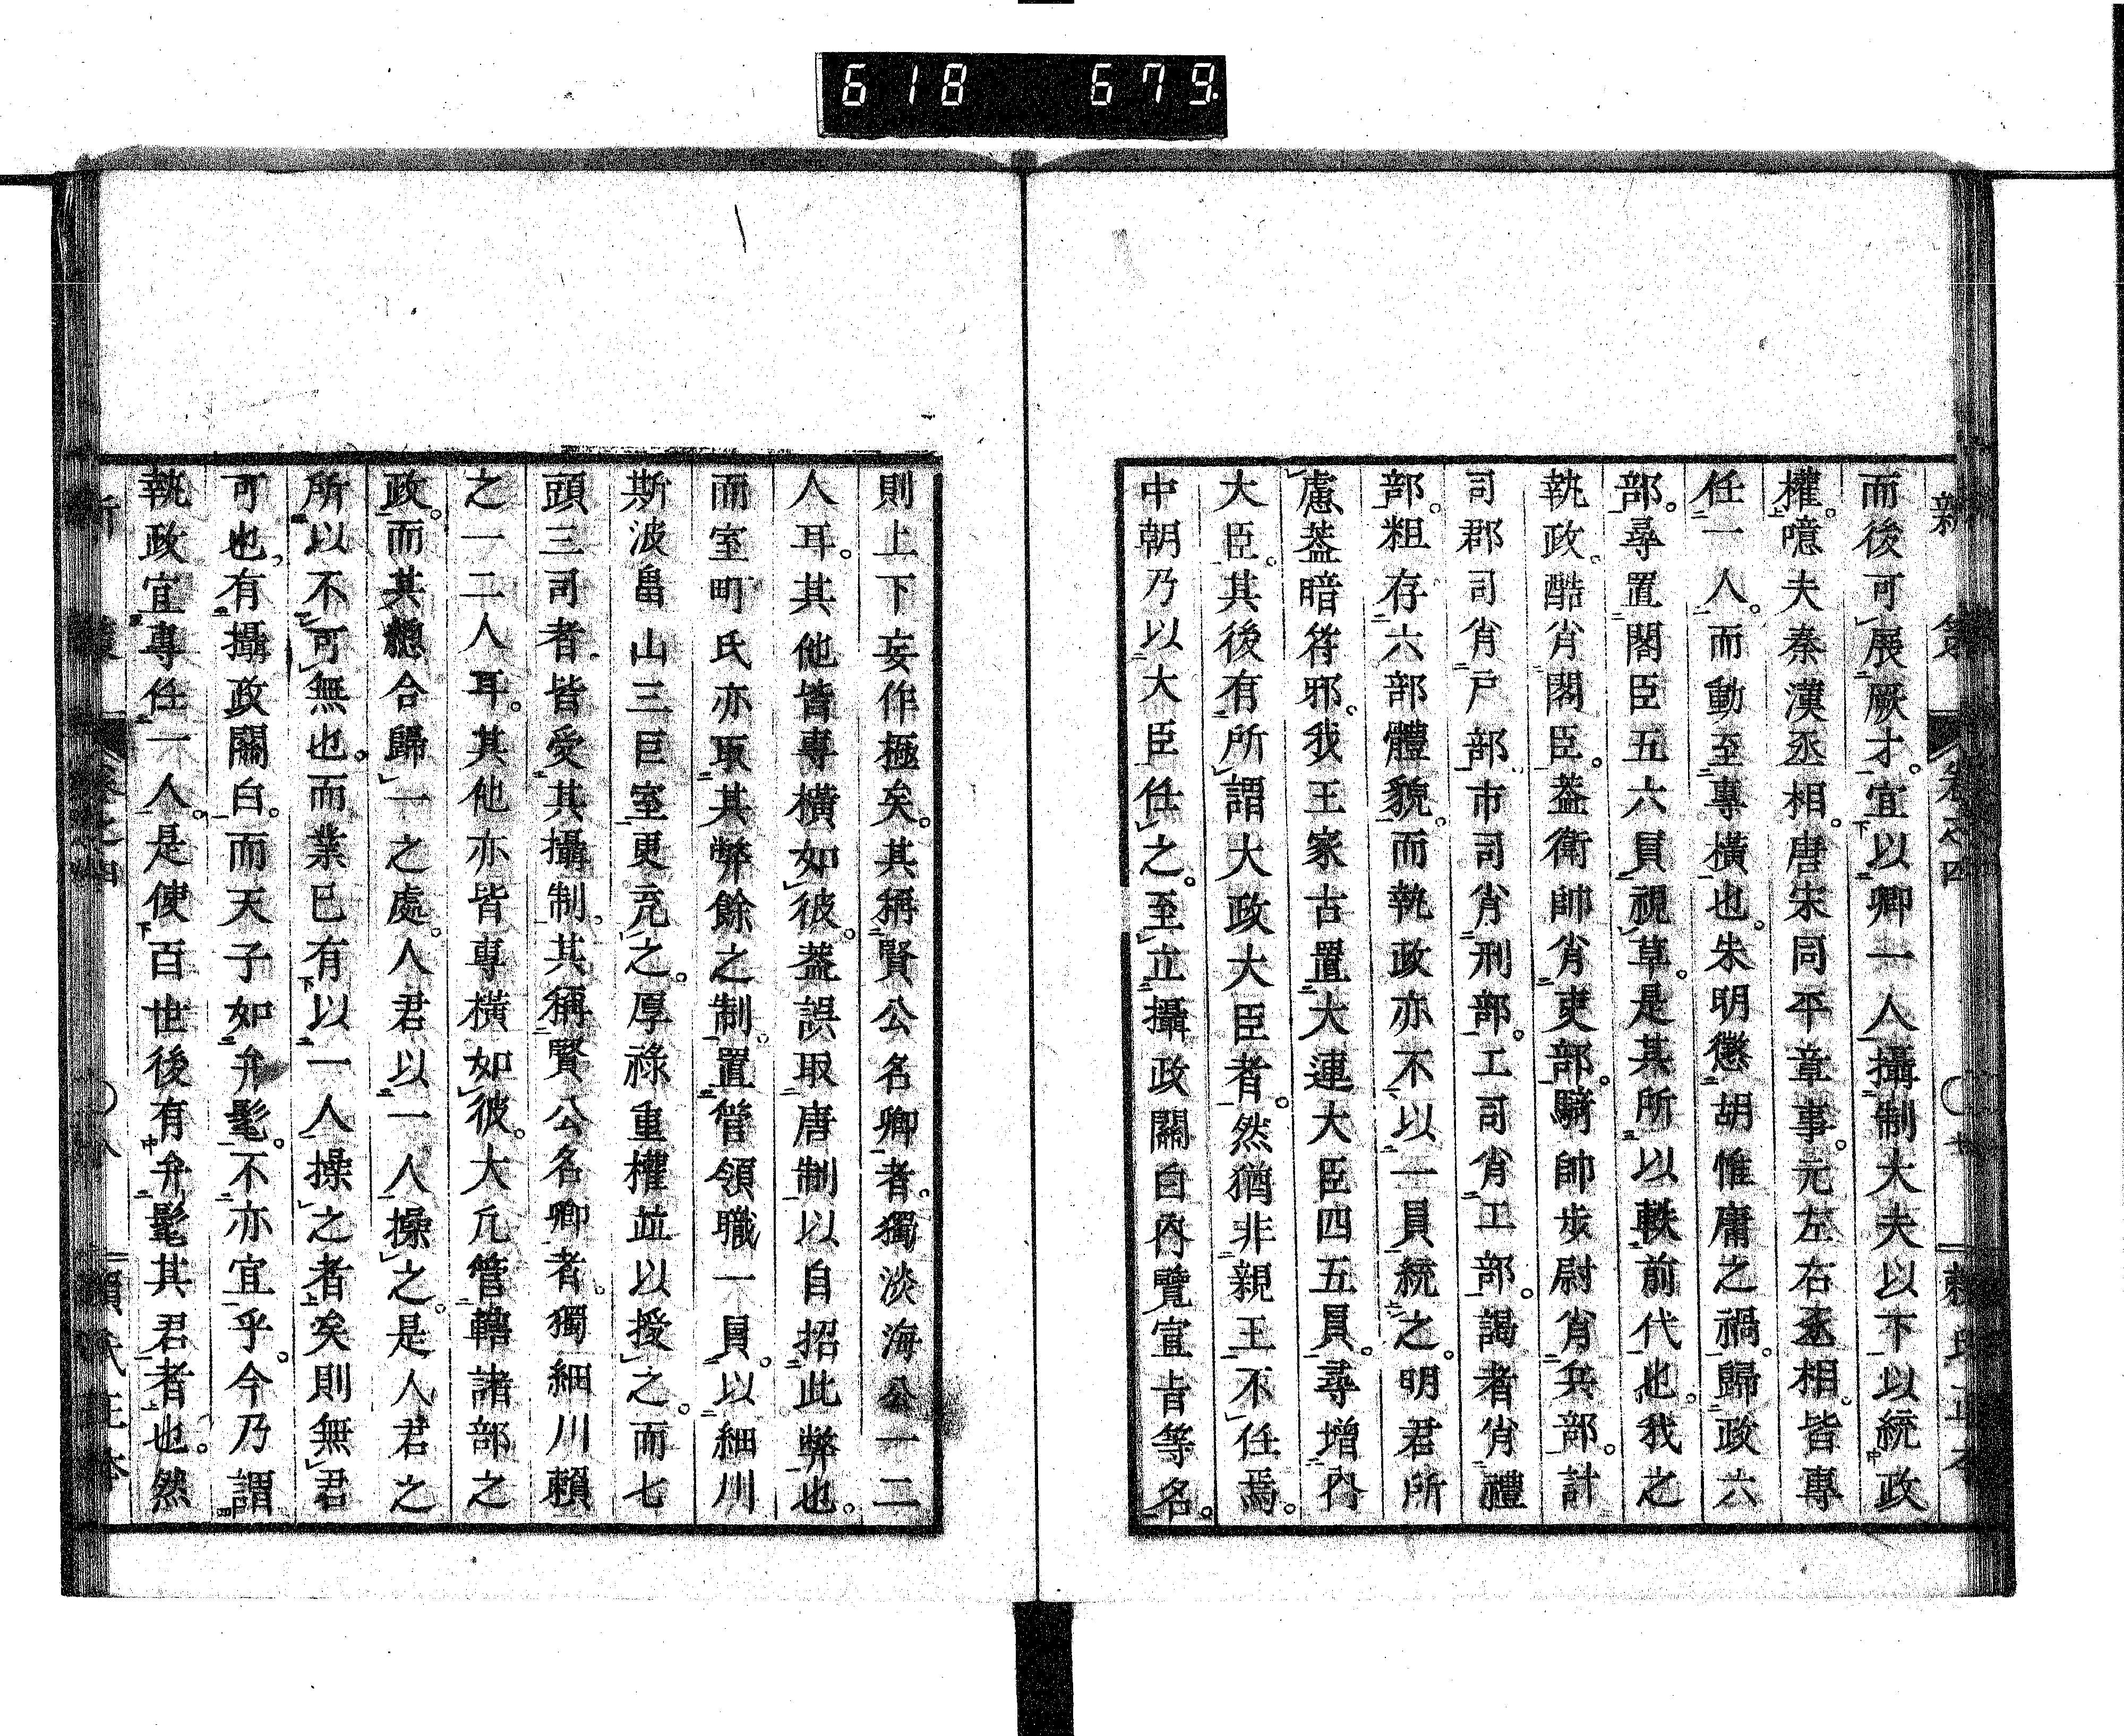 618 679
新策 卷之四 賴氏正本
而後可展厥才。宜以卿一人攝制大夫以下以統政
權。噫夫秦漢丞相。唐宋同平章事。元左右丞相。皆專
任一人。而動至專橫也。朱明懲胡惟庸之禍。歸政六
部。尋置閣臣五六員視草。是其所以軼前代也。我之
執政。酷肖閣臣。蓋衛帥肖吏部。騎帥步尉肖兵部。計
司郡司肖戶部市司肖刑部。工司肖工部。謁者肖禮
部。粗存六部體貌。而執政亦不以一員統之。明君所
慮蓋暗符邪。我王家古置大連大臣四五員。尋增內
大臣。其後有所謂大政大臣者。然猶非親王不任焉。
中朝乃以大臣任之。至立攝政關白內覽宣旨等名。
則上下妄作極矣。其稱賢公名卿者。獨淡海公一二
人耳。其他皆專橫如彼。蓋誤取唐制以自招此弊也。
而室町氏亦取其弊餘之制。置管領職一員。以細川
斯波畠山三巨室更充之。厚祿重權並以授之。而七
頭三司者皆受其攝制。其稱賢公名卿者。獨細川賴
之一二人耳。其他亦皆專橫如彼。大凡管轄諸部之
政。而其總合歸一之處。人君以一人操之。是人君之
所以不可無也。而業已有以一人操之者矣則無君
可也。有攝政關白。而天子如弁髦。不亦宜乎。今乃謂
執政宜專任一人。是使百世後有弁髦其君者也。然
卷之四